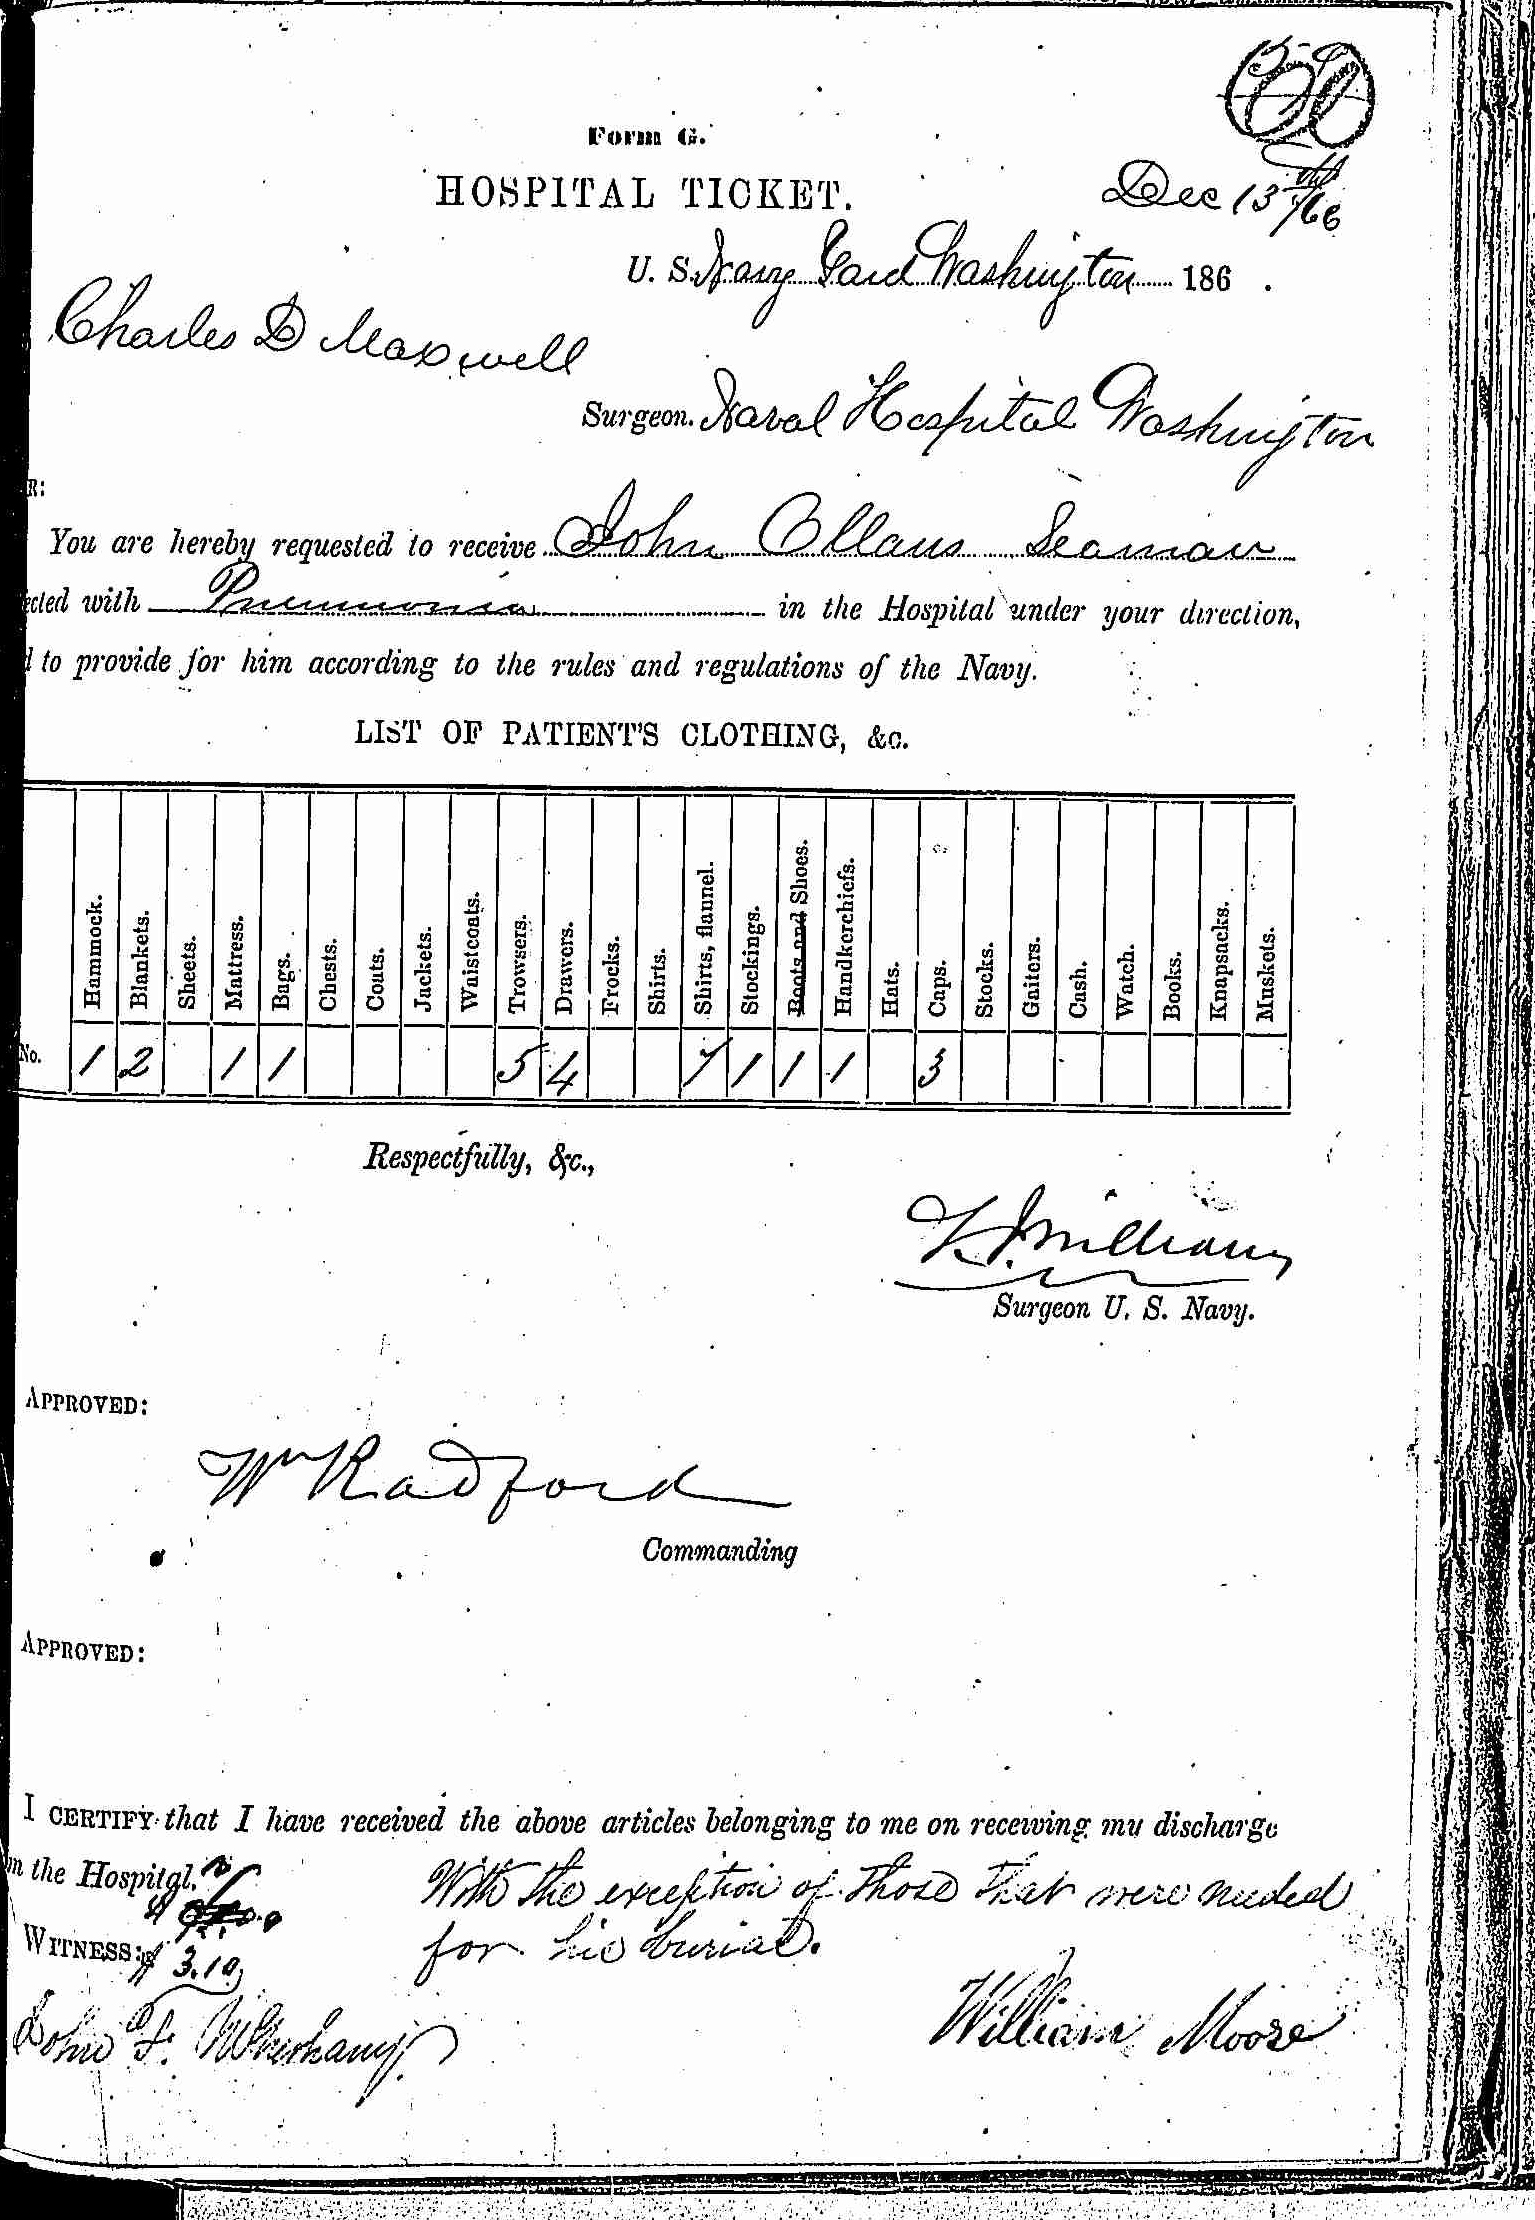 Form G.
HOSPITAL TICKET.
Dec 13th/66
U. S. Navy Yard Washington 186 .
Charles D Maxwell
Surgeon. Naval Hospital Washington
R:
You are hereby requested to receive John Ollaus Seaman
ected with Pneumonia in the Hospital under your direction,
d to provide for him according to the rules and regulations of the Navy.
LIST OF PATIENT'S CLOTHING, &c.
Hammock. Blankets. Sheets. Mattress. Bags. Chests. Coats. Jackets. Waistcoats. Trowsers. Drawers. Frocks. Shirts. Shirts, flannel. Stockings. Boots and Shoes. Handkerchiefs. Hats. Caps. Stocks. Gaiters. Cash. Watch. Books. Knapsacks. Muskets.
No. 1 2 1 1 5 4 7 1 1 1 3
Respectfully, &c.,
Surgeon U. S. Navy.
APPROVED:
Wm Radford
Commanding
APPROVED:
I CERTIFY that I have received the above articles belonging to me on receiving my discharge
m the Hospital.
With the exception of those that were needed
for his burial.
WITNESS: $ 3.10
William Moore
John F.